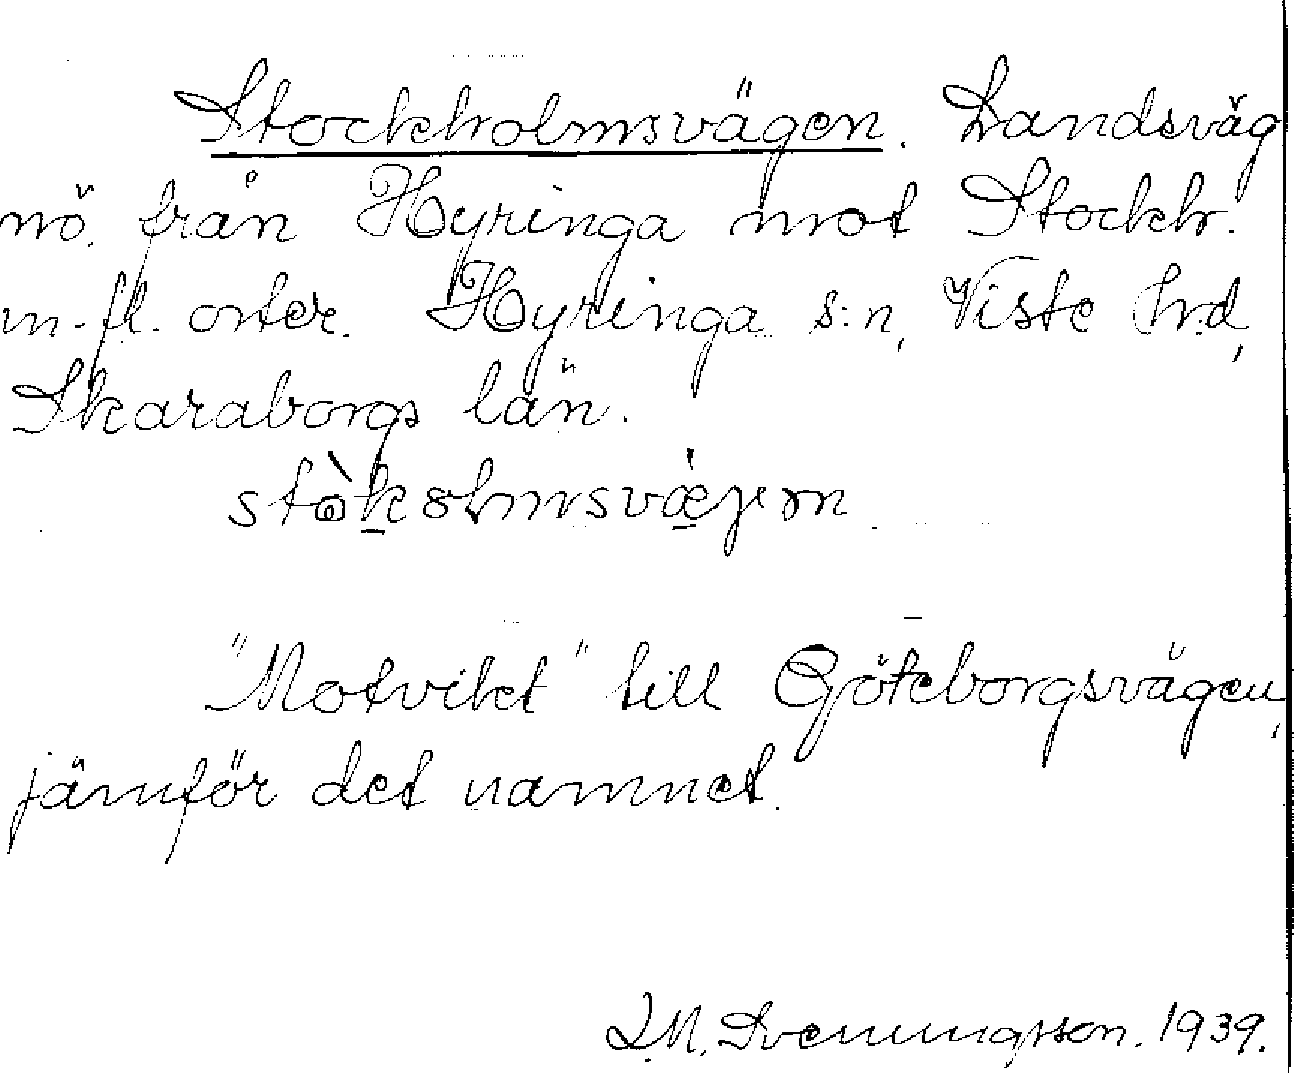 Stockholmsvägen. Landsväg
nö. från Hyringa mot Stockh.
m.fl. orter. Hyringa s:n, Viste hd,
Skaraborgs län.
"Motvikt" till Göteborgsvägen,
jämför det namnet.
Svenningsson. 1939.